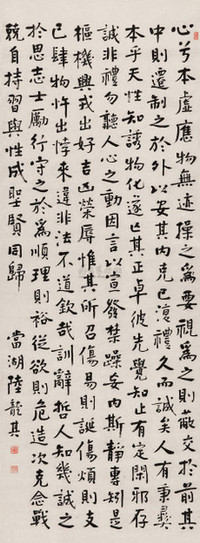 心兮本虛應物無迹操之為要視為之則蔽交於前其
中則遷制之於外以安其內克己復禮久而誠矣人有秉彝
本乎天性知誘物化遂亡其正卓彼先覺知止有定閑邪存
誠非禮勿聽人心之動因言以宣發禁躁妄內斯靜專矧是
樞機興戎出好吉凶榮辱惟其所召傷易則誕傷煩則支
己肆物忤出悖來違非法不道欽哉訓辭哲人知幾誠之
於思志士勵行守之於為順理則裕從欲則危造次克念戰
兢自持習與性成聖賢同歸 當湖陸隴其